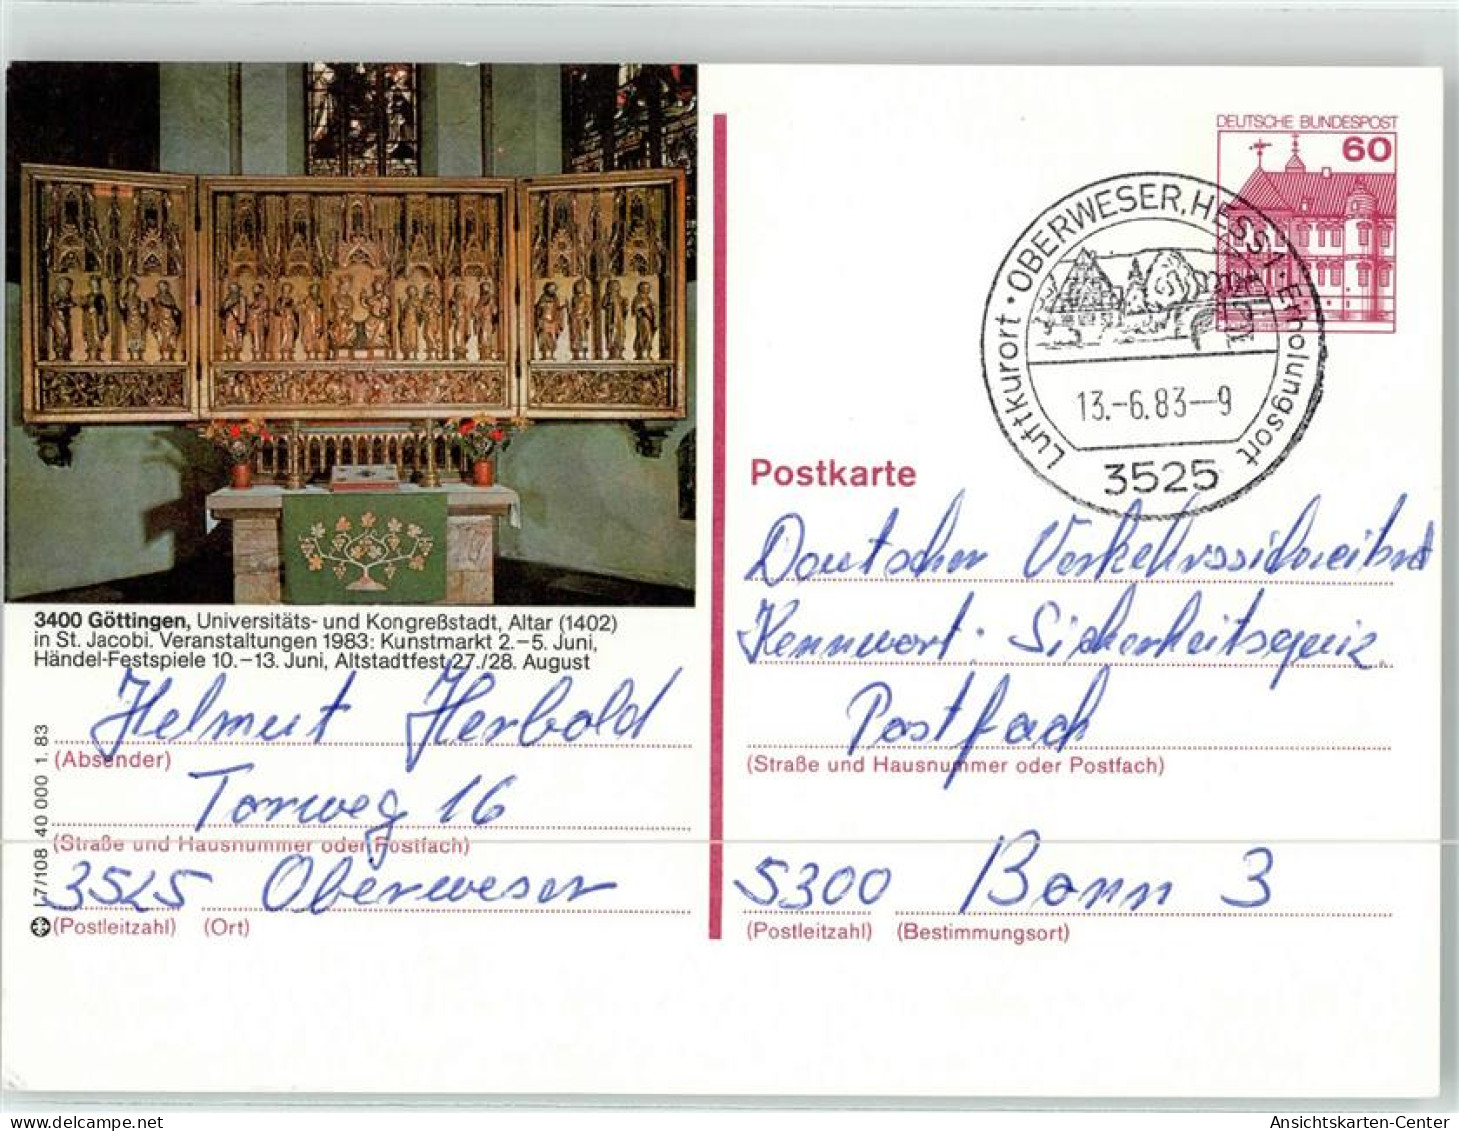 DEUTSCHE BUNDESPOST
60
Luftkurort · OBERWESER, HESS 1 · Erholungsort
13.-6.83--9
3525
Postkarte
Deutscher Verkehrssicherheitsrat
Kennwort: Sicherheitsquiz
Postfach
(Straße und Hausnummer oder Postfach)
5300 Bonn 3
(Postleitzahl) (Bestimmungsort)
3400 Göttingen, Universitäts- und Kongreßstadt, Altar (1402)
in St. Jacobi. Veranstaltungen 1983: Kunstmarkt 2.–5. Juni,
Händel-Festspiele 10.–13. Juni, Altstadtfest 27./28. August
Helmut Herbold
(Absender)
Torweg 16
(Straße und Hausnummer oder Postfach)
3525 Oberweser
(Postleitzahl) (Ort)
L 7/108 40 000 1.83
Ansichtskarten-Center